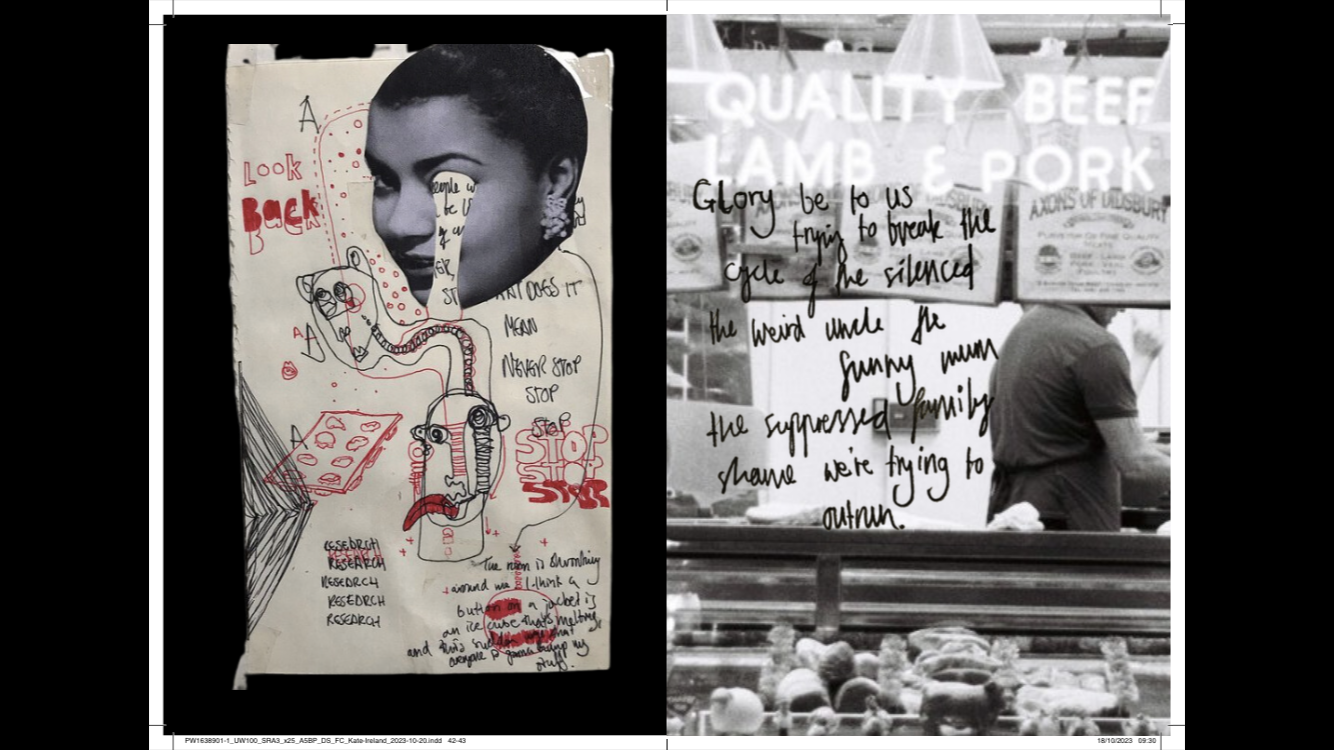 A
LOOK
BACK
people w
be
ER,
ST
WHAT DOES IT
MEAN
NEVER STOP
STOP
STOP
STOP
STOP
STOP
A
A
A
RESEARCH
RESEARCH
RESEARCH
RESEARCH
RESEARCH
The room is shrinking
around me I think a
button on a jacket is
an ice cube that's melting
and that's
everyone is gonna my
stuff.
QUALITY BEEF
LAMB & PORK
AXONS OF DIDSBURY
PURVEYOR OF FINE QUALITY
MEATS
BEEF · LAMB
Glory be to us
trying to break the
cycle of the silenced
the weird uncle the
funny mum
the suppressed family
shame we're trying to
outrun.
PW1638901-1_UW100_SRA3_x25_A5BP_DS_FC_Kate-Ireland_2023-10-20.indd 42-43
18/10/2023 09:30